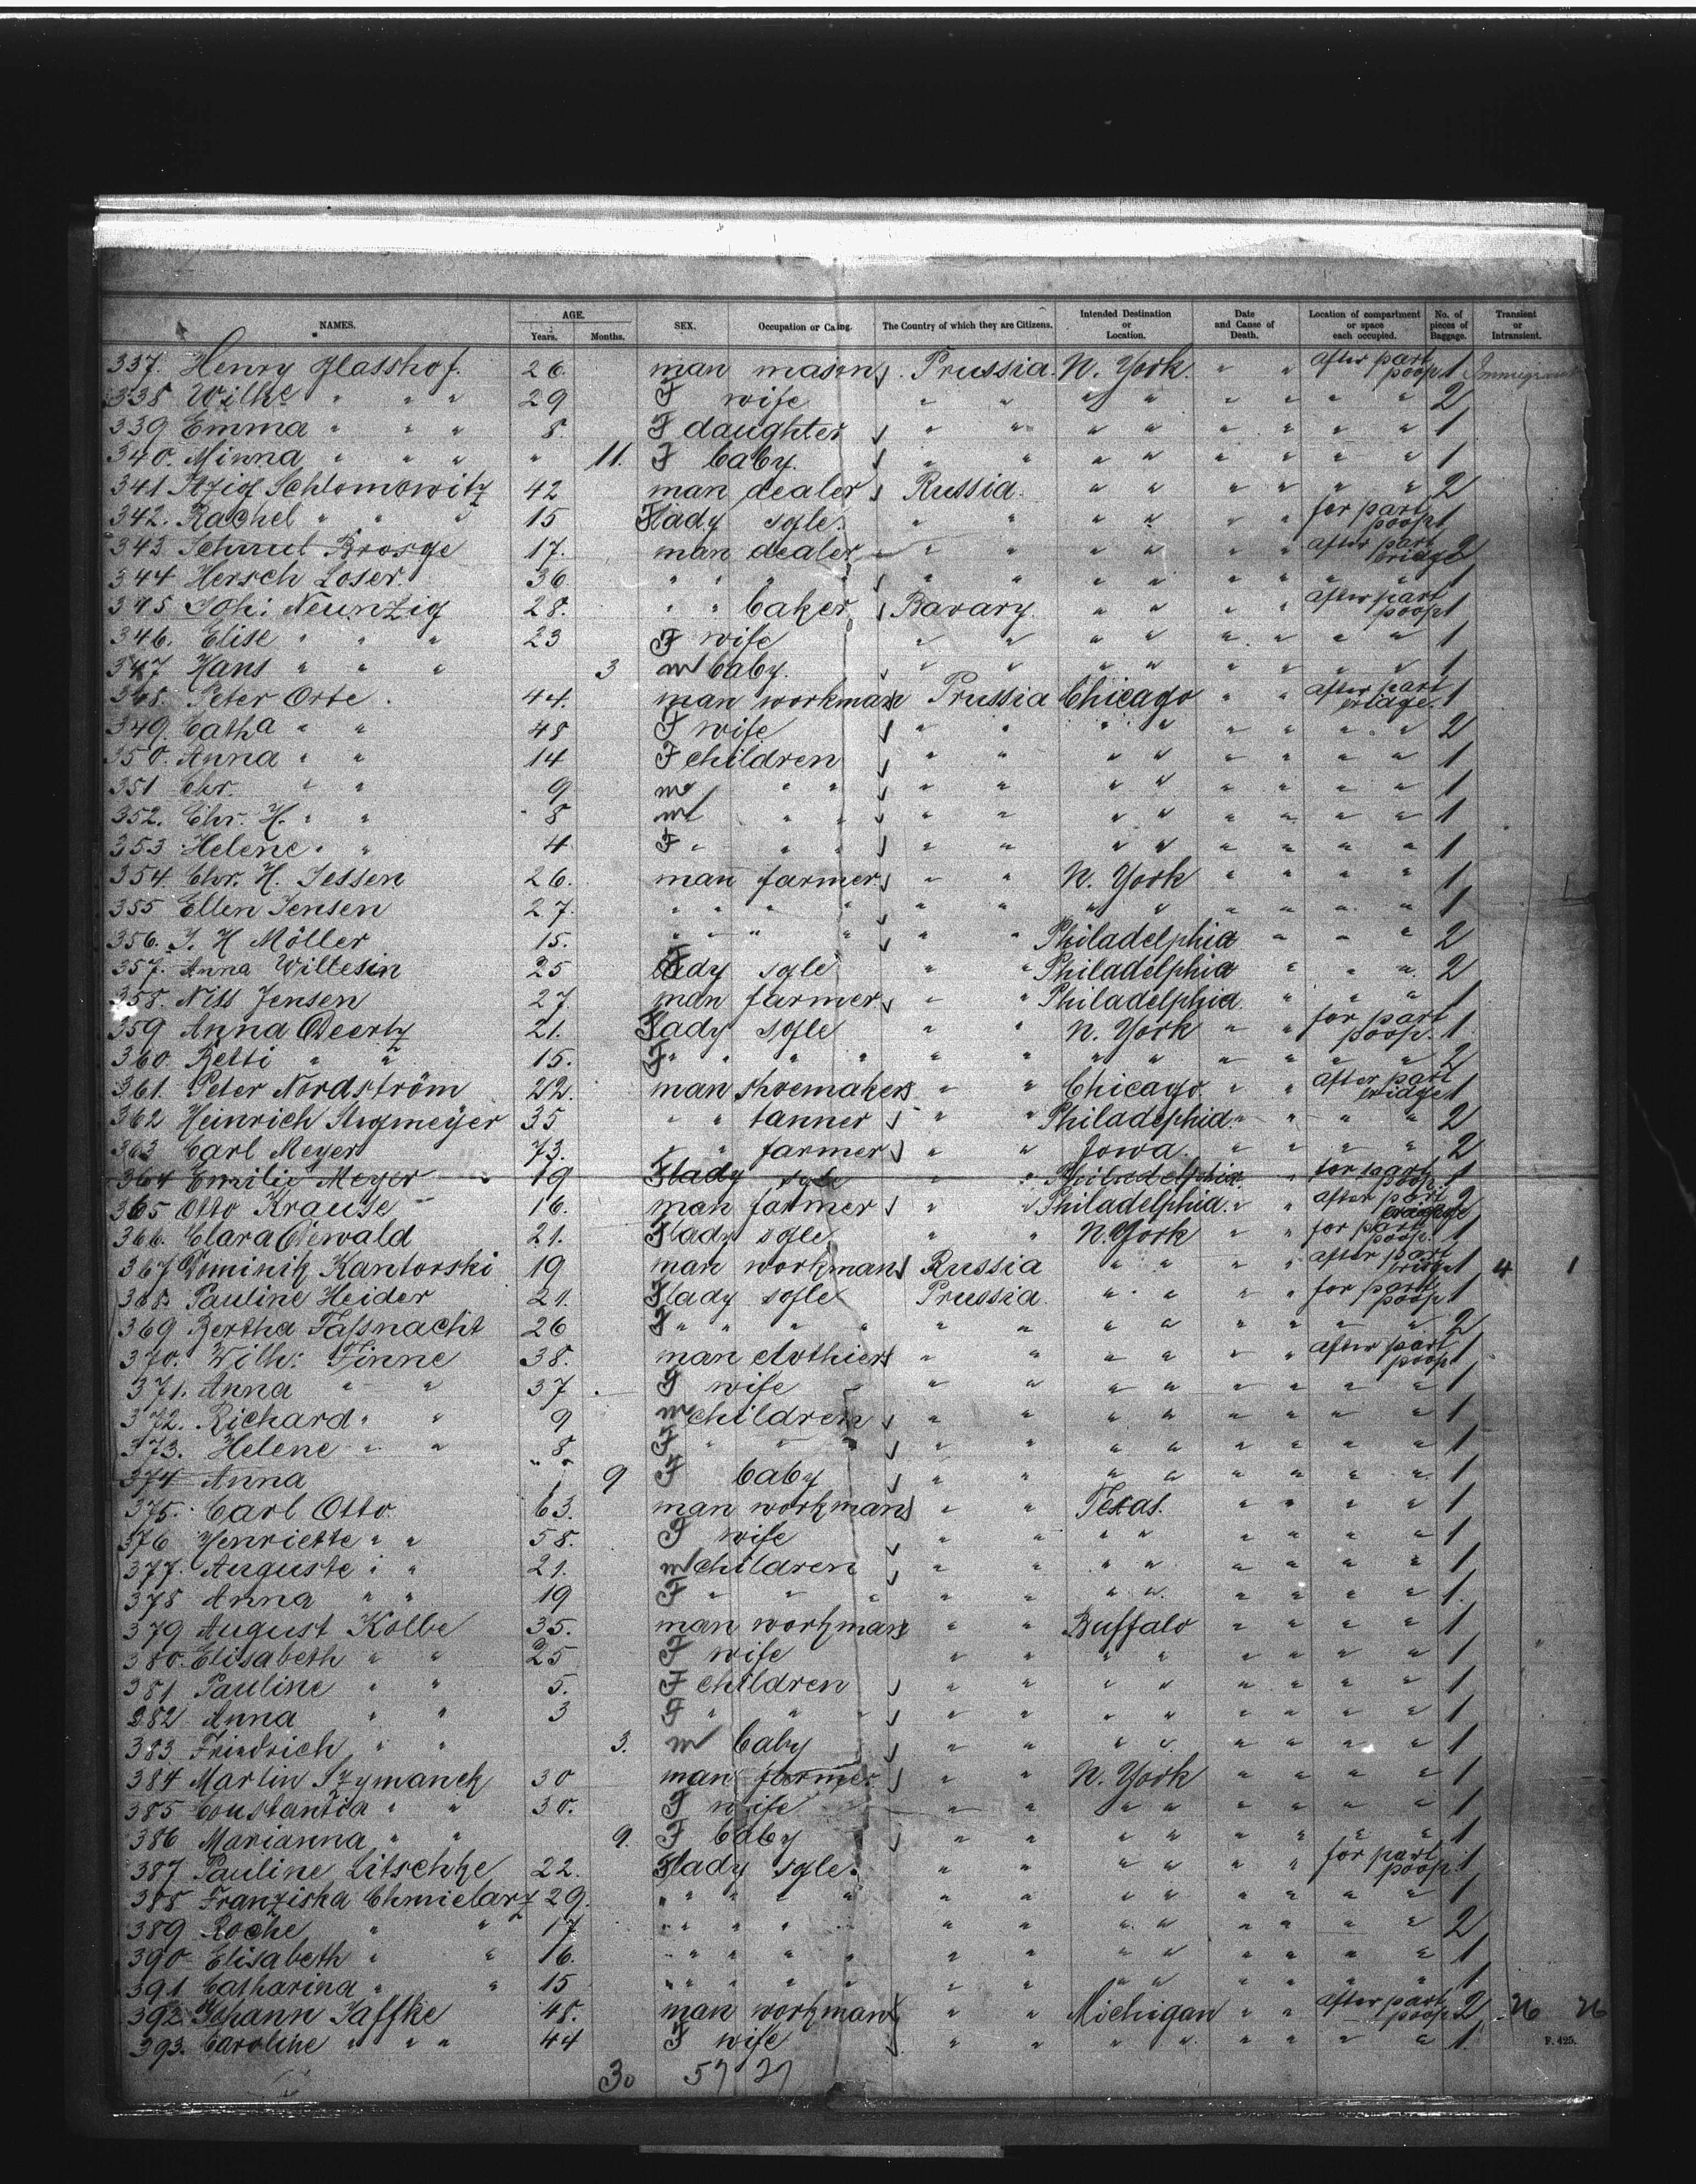 NAMES. AGE. Years. Months. SEX. Occupation or Calling. The Country of which they are Citizens. Intended Destination or Location. Date and Cause of Death. Location of compartment or space each occupied. No. of pieces of Baggage. Transient or Intransient.
337. Henry Glasshof. 26. man mason Prussia. N. York. " " after part poop 1 Immigrant
338 Wilhe " " " 29 F wife " " " " " " " " 2
339 Emma " " " 8. F daughter " " " " " " " " 1
340. Minna " " " " 11. F baby. " " " " " " " " 1
341 Itzig Schlomowitz 42 man dealer Russia. " " " " " " 2
342. Rachel " " " 15 Flady sgle. " " " " " " for part poop 1
343 Schmul Brosge 17. man dealer " " " " " " after part bridge 2
344 Hersch Loser. 36 " " " " " " " " " " " " 1
345 Joh: Neunzig 28. " " baker Bavary. " " " " after part poop 1
346. Elise " " " 23 F wife " " " " " " " " 1
347 Hans " " " 3 m baby. " " " " " " " " 1
348. Peter Orte. 44. man workman Prussia Chicago " " after part bridge. 1
349. Catha " " 48 F wife " " " " " " " " 2
350. Anna " " 14 F children " " " " " " " " 1
351 Chr. " " 9 m " " " " " " " " " " 1
352. Chr. H. " " 8 m " " " " " " " " " " 1
353 Helene " " 4 F " " " " " " " " " " " 1
354. Chr. H. Jessen 26. man farmer " " N. York " " " " 1
355 Ellen Jensen 27. " " " " " " " " " " " " 1
356. J. H Möller 15. " " " " " " Philadelphia " " " 2
357. Anna Wiltesin 25 lady sgle " " Philadelphia " " " 2
358. Nils Jensen 27 man farmer " " Philadelphia. " " " 1
359 Anna Deertz 21. Flady sgle " " N. York " " for part poop. 1
360. Betti " " 15. F " " " " " " " " " " " " 2
361. Peter Nordström 22. man shoemaker " " Chicago. " " after part bridge 1
362 Heinrich Stegmeyer 35 " " tanner " " Philadelphia. " " " 2
363 Carl Meyer 73. " " farmer " " Iowa. " " " " 2
364 Emilie Meyer 19 Flady sgle " " Philadelphia " for part poop. 1
365 Otto Krause 16. man farmer " " Philadelphia. " " after part bridge 2
366. Clara Oewald 21. Flady sgle " " N. York " " for part poop. 1
367 Dominik Kantorski 19 man workman Russia " " " " after part bridge 1 4 1
368. Pauline Heider 21. Flady sgle Prussia. " " " " for part poop. 1
369 Bertha Faßnacht 26 F " " " " " " " " " " " " 2
370. Wilh: Finne 38. man clothier " " " " " " after part poop 1
371. Anna " " 37 F wife " " " " " " " " 1
372. Richard " " 9 m children " " " " " " " " 1
373. Helene " " 8 F " " " " " " " " " " 1
374 Anna " " 9 F baby " " " " " " " " 1
375. Carl Otto. 63. man workman " " Texas. " " " " 1
376 Henriette " " 58. F wife " " " " " " " " 1
377. Auguste " " 21. m children " " " " " " " " 1
378 Anna " " 19 F " " " " " " " " " " 1.
379 August Kolbe 35. man workman " " Buffalo " " " " 1
380. Elisabeth " " 25 F wife " " " " " " " " 1
381 Pauline " " 5. F children " " " " " " " " 1
382 Anna " " 3 F " " " " " " " " " " 1
383 Friedrich " " 3. m baby " " " " " " " " 1
384 Martin Szymanek 30 man farmer " " N. York " " " " 1
385 Constantia " " 30. F wife " " " " " " " " 1
386 Marianna " " 9. F baby " " " " " " " " 1
387 Pauline Litschke 22. Flady sgle. " " " " " " for part poop. 1
388 Franziska Chmielarz 29. " " " " " " " " " " " " 1
389 Roche " " 17 " " " " " " " " " " " " 2
390 Elisabeth " " 16. " " " " " " " " " " " " 1
391 Catharina " " 15 " " " " " " " " " " " " 1
392. Johann Jaffke 48. man workman " " Michigan " " after part poop. 2 26 26
393. Caroline " " " 44 F wife " " " " " " " " 1.
P. 425.
30 57 27